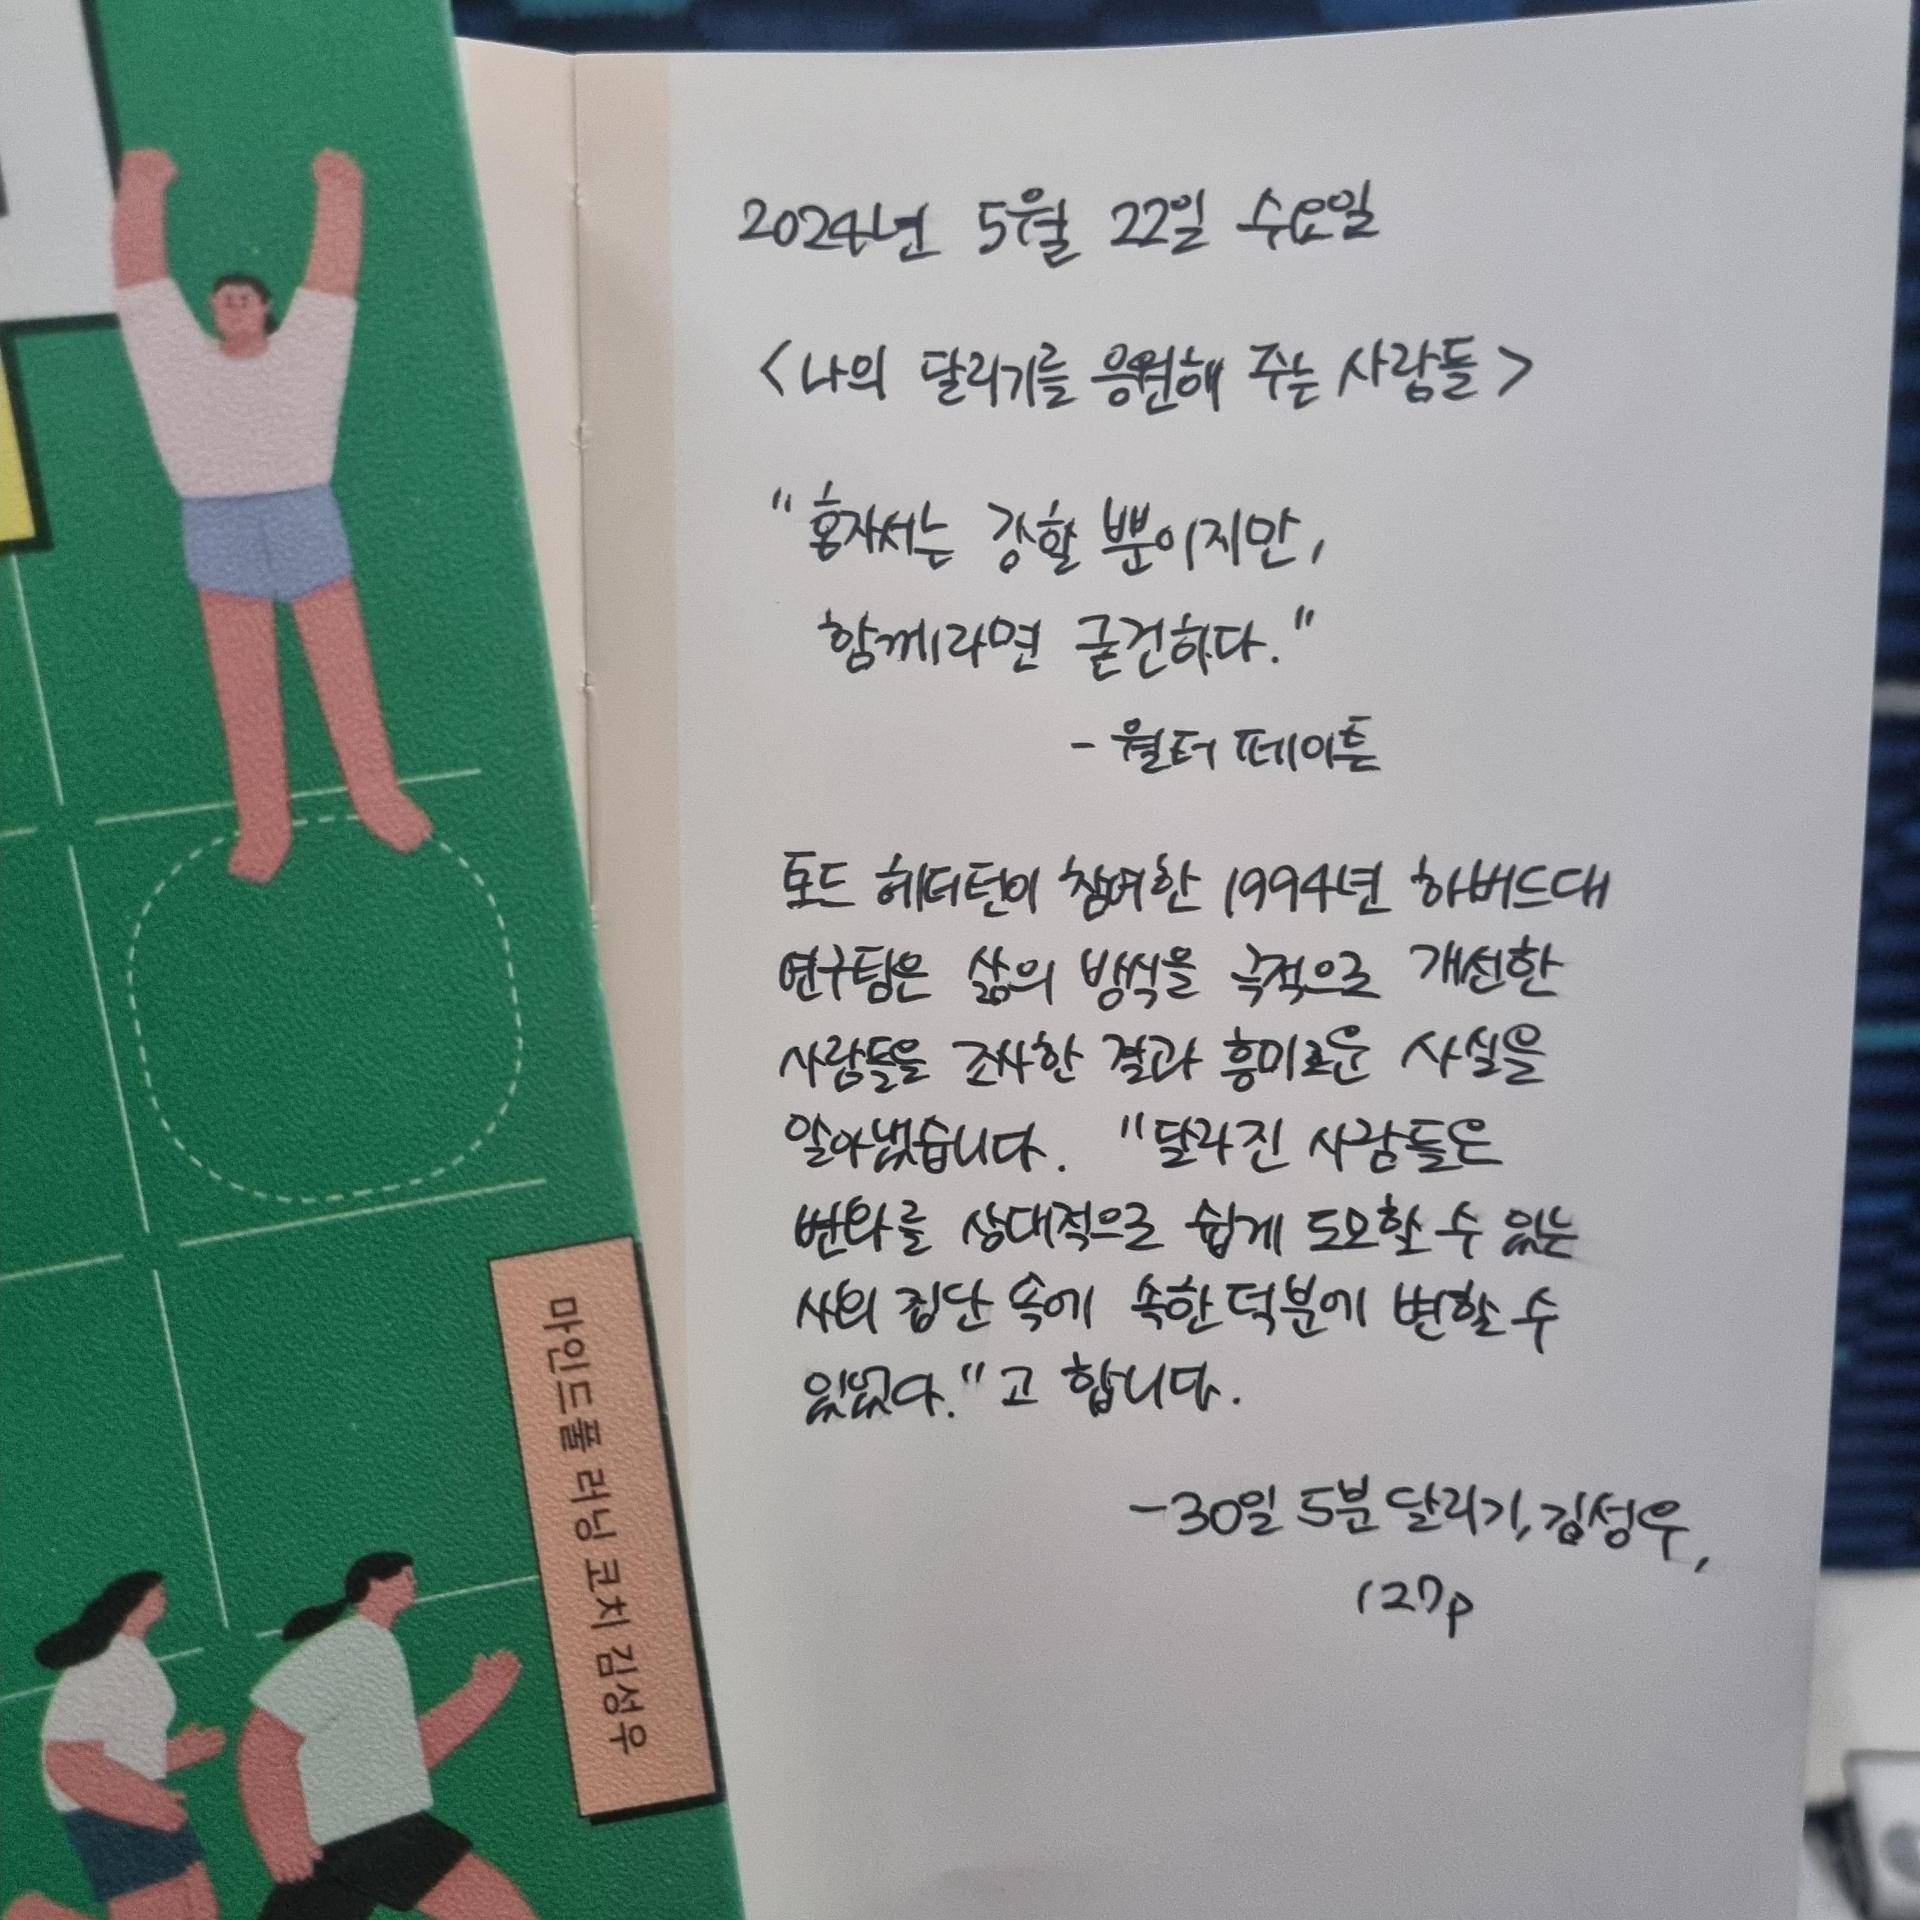 2024년 5월 22일 수요일
<나의 달리기를 응원해 주는 사람들>
"혼자서는 강할 뿐이지만,
함께라면 굳건하다."
- 월터 페이튼
토드 헤더턴이 참여한 1994년 하버드대
연구팀은 삶의 방식을 극적으로 개선한
사람들을 조사한 결과 흥미로운 사실을
알아냈습니다. "달라진 사람들은
변화를 상대적으로 쉽게 도모할 수 있는
사회 집단 속에 속한 덕분에 변할 수
있었다."고 합니다.
-30일 5분 달리기, 김성우,
127p
마인드풀 러닝 코치 김성우